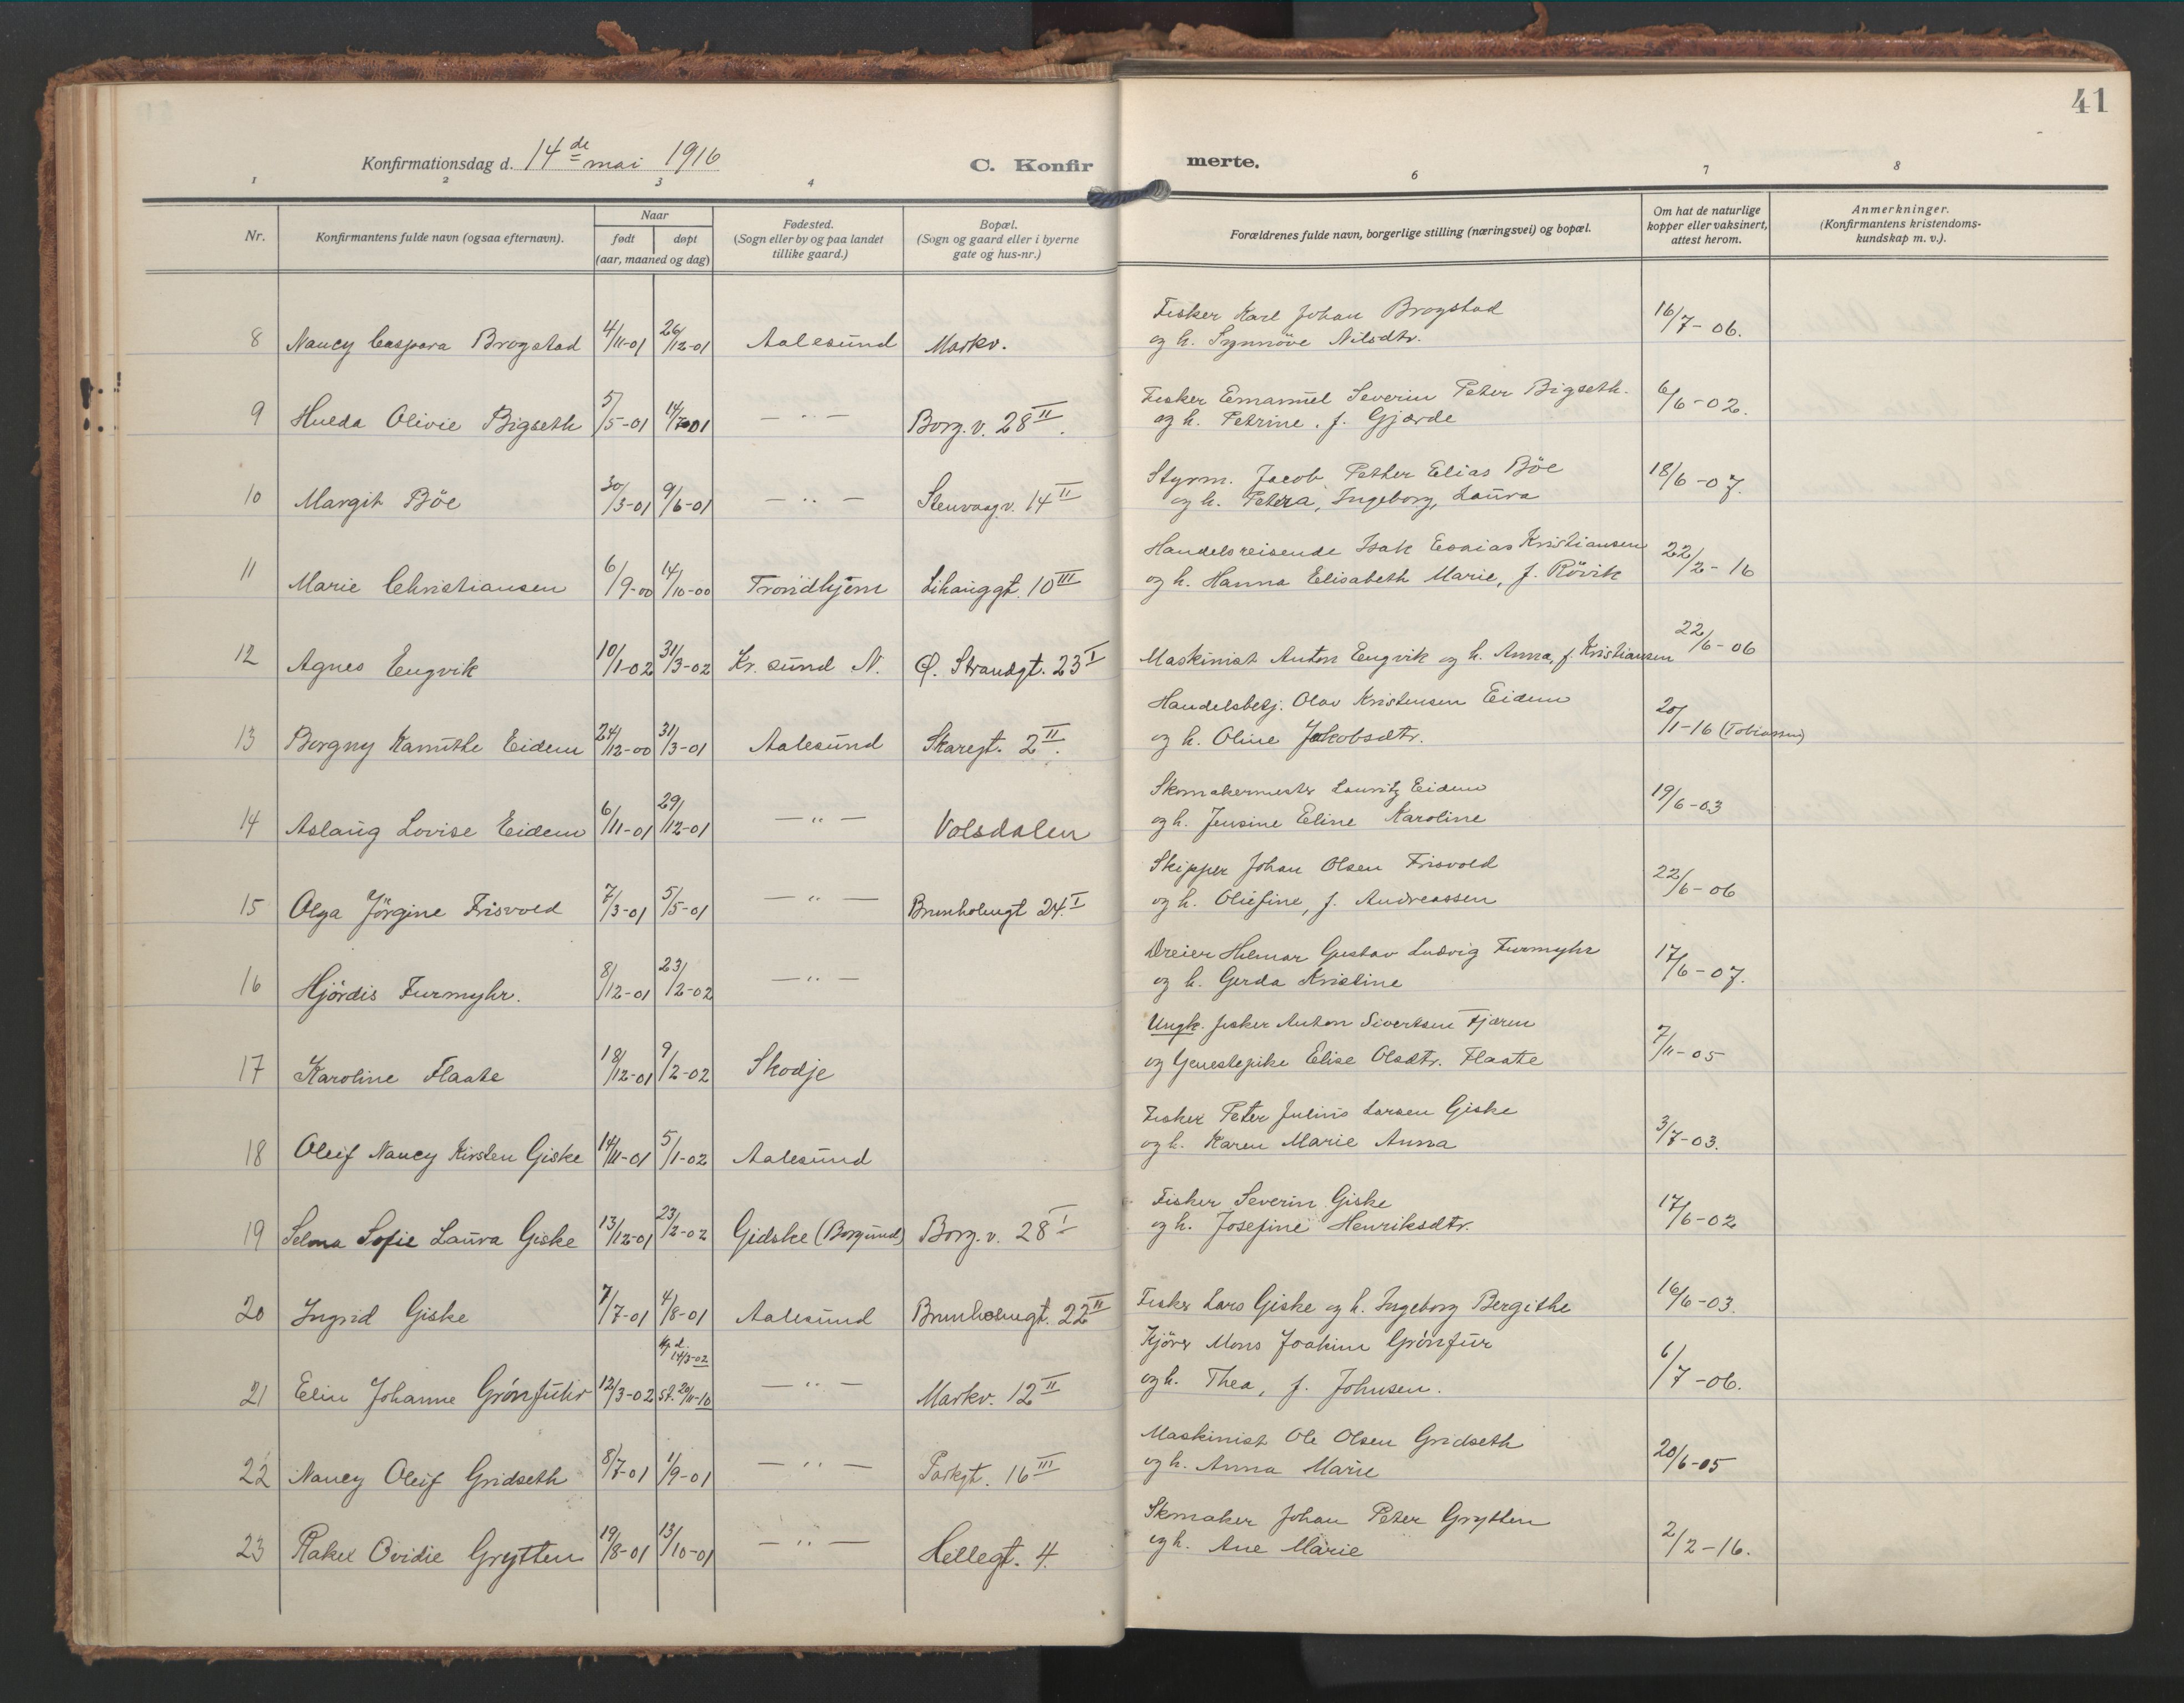 41
Konfirmationsdag d. 14de mai 1916 C. Konfir merte.
1 2 3 4 6 7 8
Nr. Konfirmantens fulde navn (ogsaa efternavn). Naar født døpt (aar, maaned og dag) Fødested. (Sogn eller by og paa landet tillike gaard.) Bopæl. (Sogn og gaard eller i byerne gate og hus-nr.) Forældrenes fulde navn, borgerlige stilling (næringsvei) og bopæl. Om hat de naturlige kopper eller vaksinert, attest herom. Anmerkninger. (Konfirmantens kristendoms-kundskap m. v.).
8 Nancy Caspara Brogstad 4/11-01 26/12-01 Aalesund Markv. Fisker Karl Johan Brogstad 16/7-06.
og h. Synnöve Nilsdtr.
9 Hulda Olivie Bigseth 5/5-01 14/7-01 — " — Borg. v. 28 II. Fisker Emanuel Severin Peter Bigseth. 6/6-02.
og h. Petrine, f. Gjærde
10 Margit Böe 30/3-01 9/6-01 — " — Stenvaagv. 14 II Styrm. Jacob Petter Elias Böe 18/6-07.
og h. Petra, Ingeborg, Laura
11 Marie Christiansen 6/9-00 14/10-00 Trondhjem Lihauggt. 10 III Handelsreisende Isak Esaias Kristiansen 22/2-16
og h. Hanna Elisabeth Marie, f. Rövik
12 Agnes Engvik 10/1-02 31/3-02 Kr. sund N. Ø. Strandgt. 23 I Maskinist Anton Engvik og h. Anna, f. Kristiansen 22/6-06
13 Borgny Kamithe Eidem 24/12-00 31/3-01 Aalesund Skaregt. 2 II. Handelsbetj. Olav Kristensen Eidem 20/1-16 (Tobiassen)
og h. Oline Jakobsdtr.
14 Aslaug Lovise Eidem 6/11-01 29/12-01 — " — Volsdalen Skomakermester Lauritz Eidem 19/6-03
og h. Jensine Eline Karoline
15 Olga Jörgine Frisvold 7/3-01 5/5-01 — " — Brunholmgt 24. I Skipper Johan Olsen Frisvold 22/6-06
og h. Oliefine, f. Andreassen
16 Hjördis Furmyhr. 8/12-01 23/2-02 — " — Dreier Hilmar Gustav Ludvig Furmyhr 17/6-07.
og h. Gerda Kristine
17 Karoline Flaate 18/12-01 9/2-02 Skodje Ungk. fisker Anton Sivertsen Fjæren 7/11-05
og Tjenestepike Elise Olsdtr. Flaate
18 Oleif Nancy Kirsten Giske 14/11-01 5/1-02 Aalesund Fisker Peter Julius Larsen Giske 3/7-03.
og h. Karen Marie Anna
19 Selma Sofie Laura Giske 13/12-01 23/2-02 Gidske (Borgund) Borg. v. 28 I Fisker Severin Giske 17/6-02
og h. Josefine Henriksdtr.
20 Ingrid Giske 7/7-01 4/8-01 Aalesund Brunholmgt. 22 II Fisker Lars Giske og h. Ingeborg Bergithe 16/6-03.
21 Elin Johanne Grönfuhr 12/3-02 14/3-02 St. 20/11-10 — " — Markv. 12 II Kjörer Mons Joakim Grönfur 6/7-06.
og h. Thea, f. Johnsen.
22 Nancy Oleif Gridseth 8/7-01 1/9-01 — " — Parkgt. 16 III Maskinist Ole Olsen Gridseth 20/6-05
og h. Anna Marie
23 Rakel Ovidie Grytten 19/8-01 13/10-01 — " — Hellegt. 4. Skomaker Johan Peter Grytten 2/2-16.
og h. Ane Marie